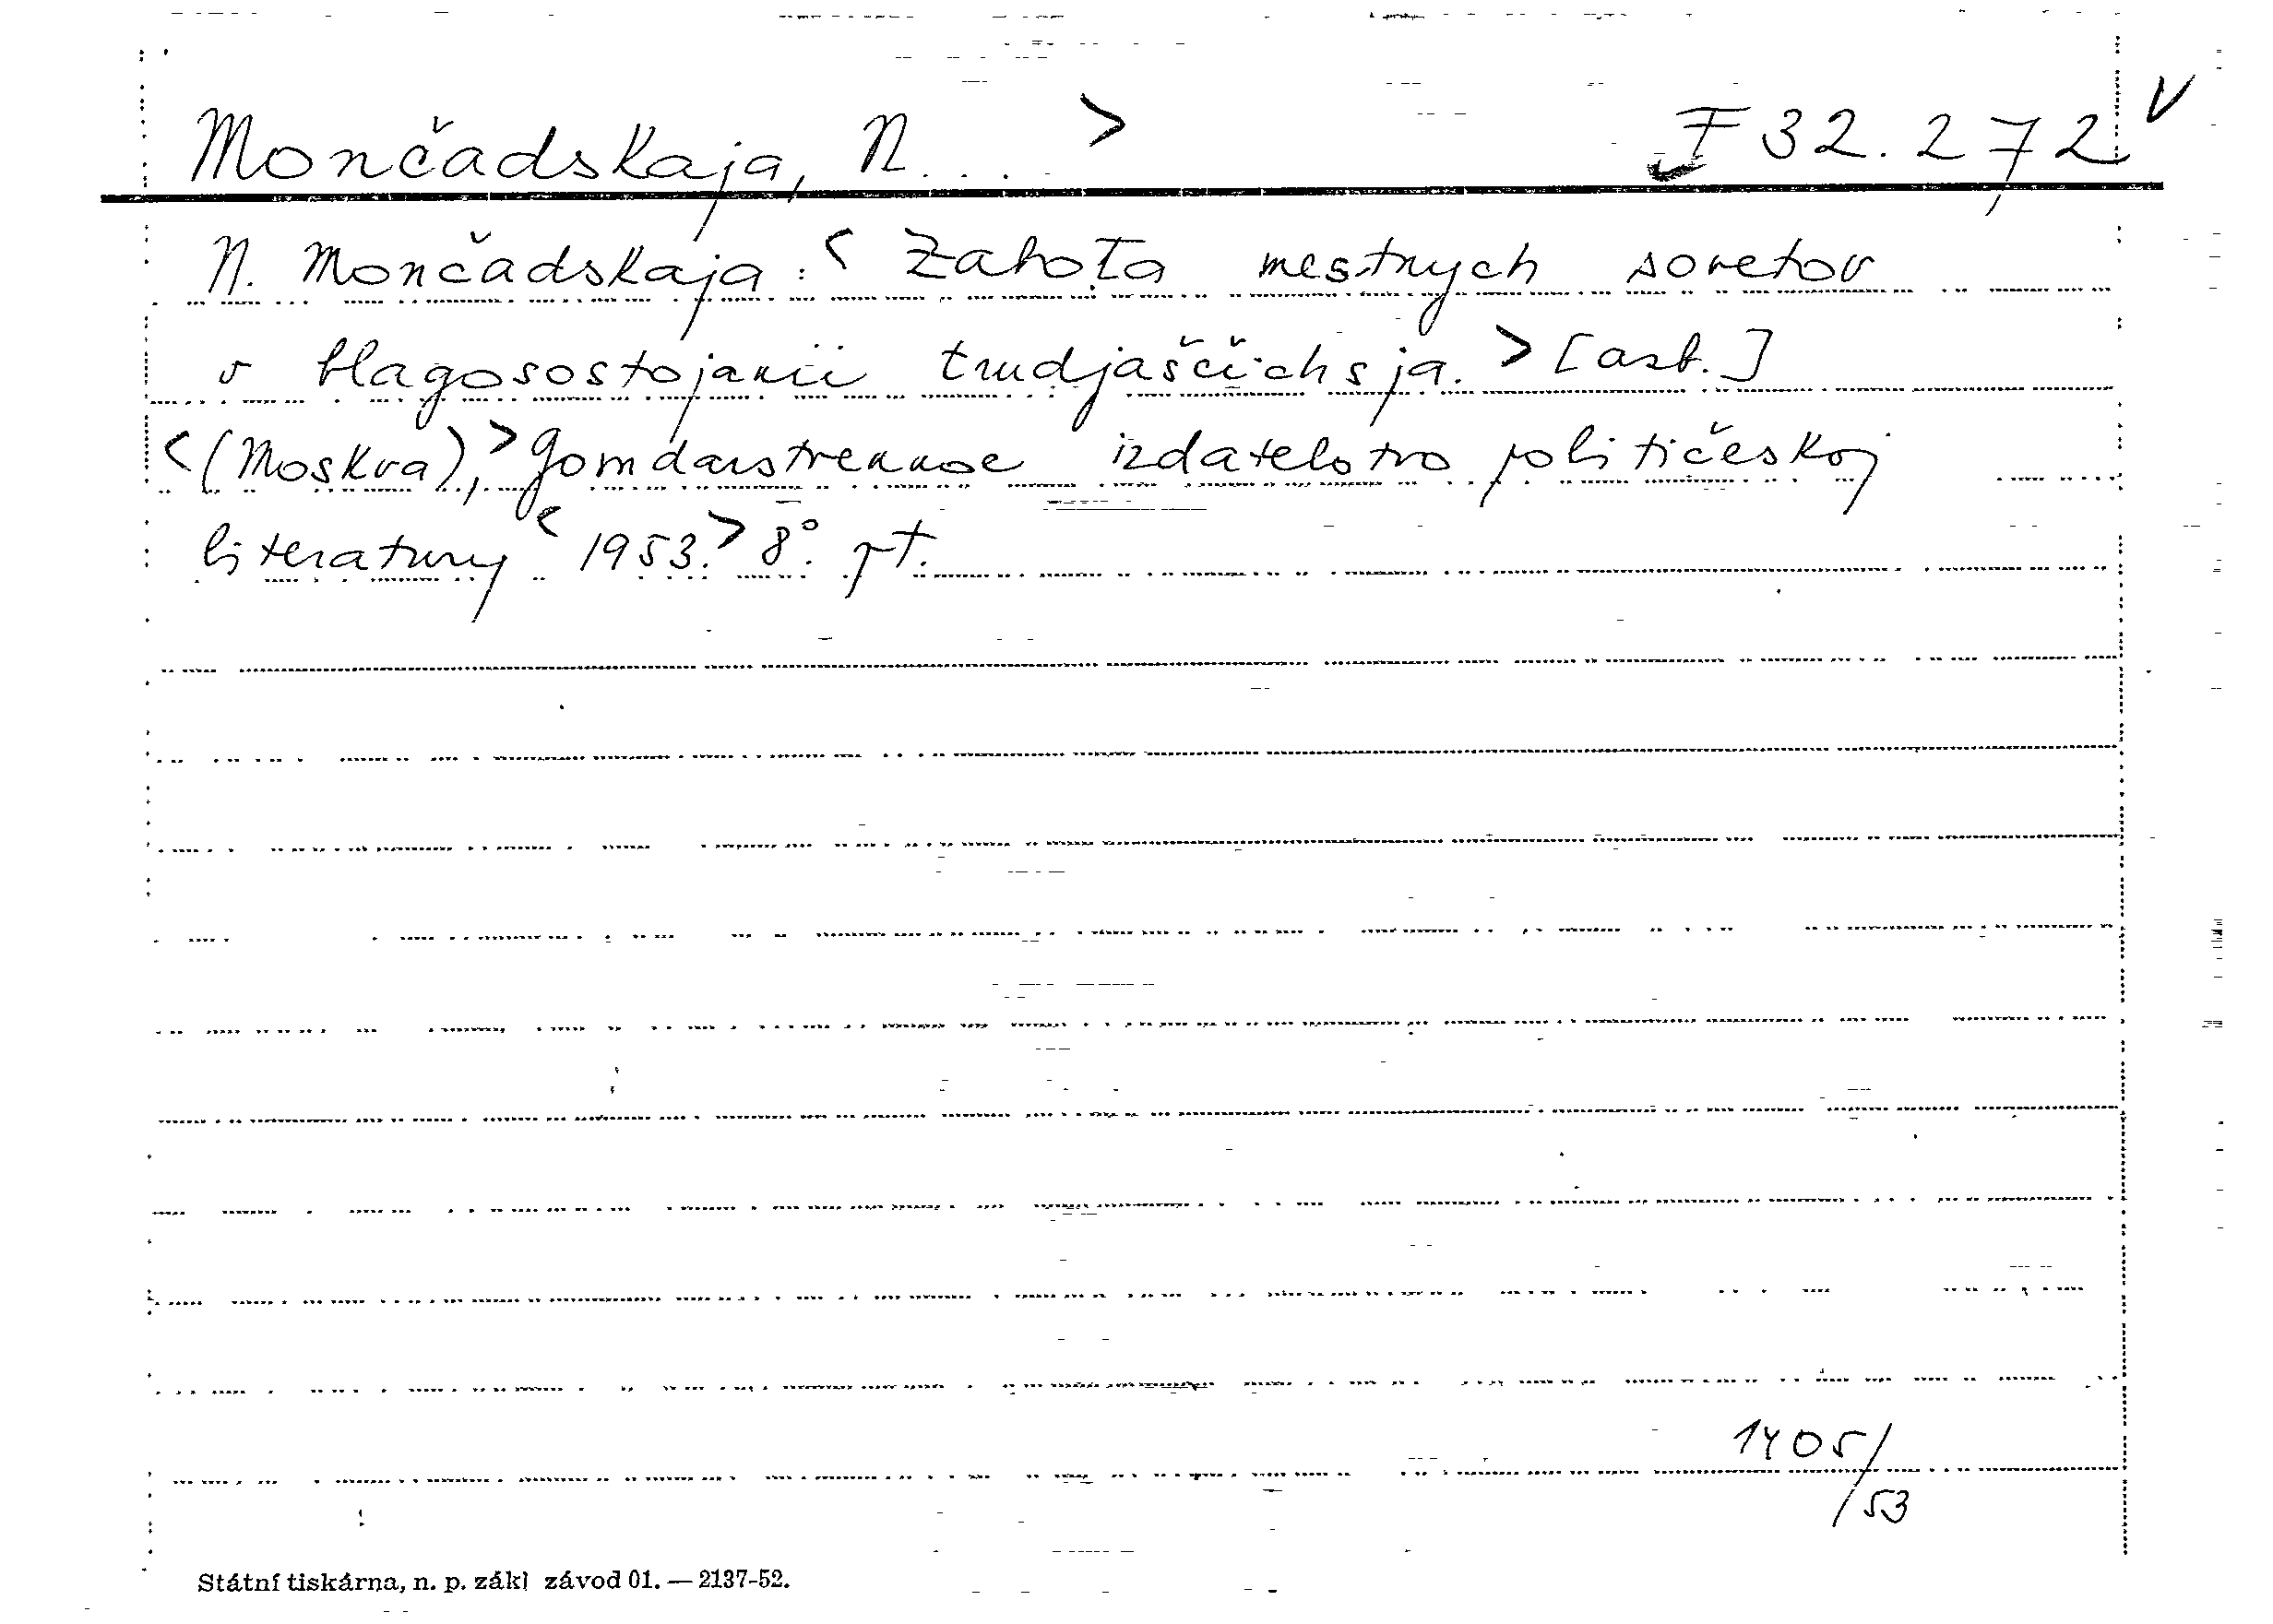 Mončadskaja, N... > F 32.272 v
N. Mončadskaja: < Zabota mestnych sovetov
v blagosostojanii trudjaščichsja. > [azb.]
< (Moskva), > Gosudarstvennoe izdatelstvo političeskoj
literatury < 1953. > 8°. pt.
1405/
53
Státní tiskárna, n. p. zákl závod 01. — 2137-52.